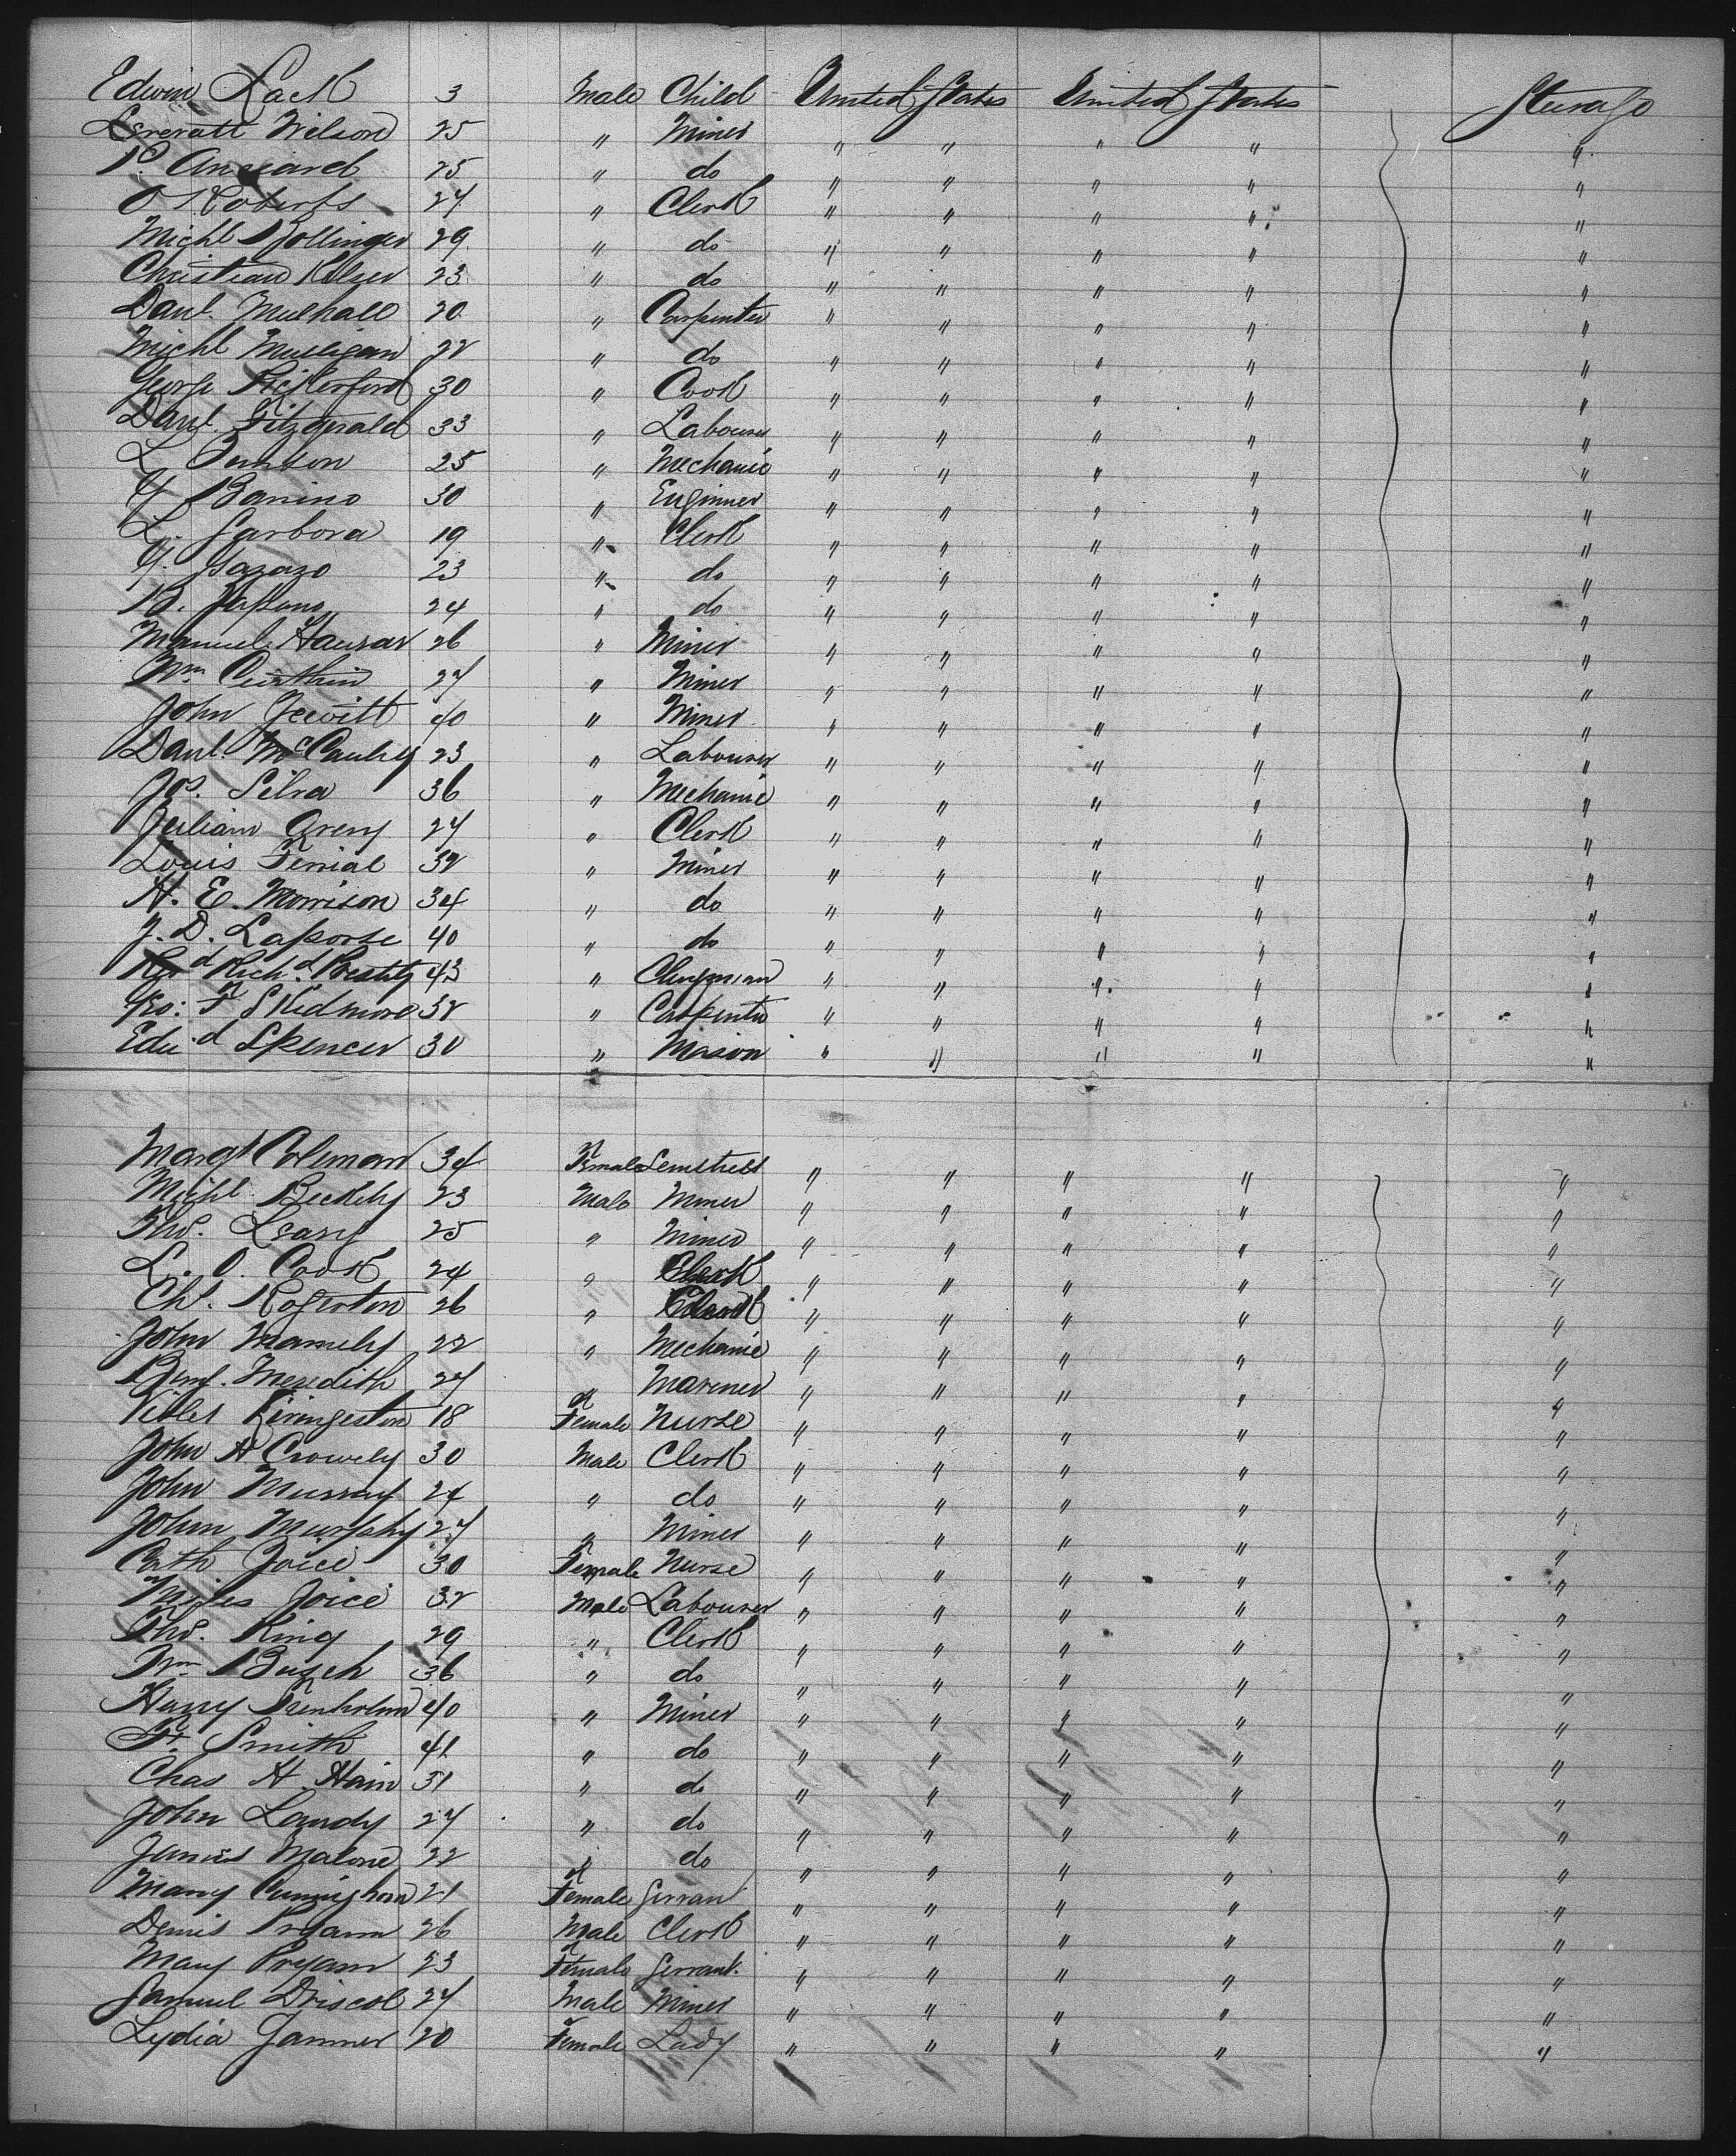 Edwin Lack 3 Male Child United States United States Steerage
Leveratt Wilson 25 " Miner " " " " "
P. 25 " do " " " " "
O Roberts 24 " Clerk " " " " "
Michl Bollinger 29 " do " " " " "
Christian Kelser 23 " do " " " " "
Danl. Mulhall 20 " Carpenter " " " " "
Michl Mulligan 22 " do " " " " "
George 30 " Cook " " " " "
Danl. Fitzgerald 33 " Labourer " " " " "
L 25 " Mechanic " " " " "
Y Barrino 30 " Enginner " " " " "
L. Garbora 19 " Clerk " " " " "
Y. 23 " do " " " " "
B. 24 " do " " " " "
Manuel 26 " Miner " " " " "
Wm Curthin 27 " Miner " " " " "
John Jewitt 40 " Miner " " " " "
Danl. McCauley 23 " Labourer " " " " "
Jos. Silva 36 " Mechanic " " " " "
Julian Areny 27 " Clerk " " " " "
Louis Ferrial 32 " Miner " " " " "
H. E. Morrison 34 " do " " " " "
J. D. Laporte 40 " do " " " " "
Revd Richd 43 " Clergyman " " " " "
Geo: F Skidmore 32 " Carpenter " " " " "
Edwd Spencer 30 " Mason " " " " "
Margt Coleman 34 Female Semstress " " " " "
Michl Buckley 23 Male Miner " " " " "
Thos. Leary 25 " Miner " " " " "
L. O. Cook 24 " Clerk " " " " "
Chs. Rogerton 26 " Clerk " " " " "
John Mamely 22 " Mechanic " " " " "
Benj. Meredith 27 " Mariner " " " " "
Violet Livingston 18 Female Nurse " " " " "
John H Crowely 30 Male Clerk " " " " "
John Murray 24 " do " " " " "
John Murphy 27 " Miner " " " " "
Cath Joice 30 Female Nurse " " " " "
Miles Joice 32 Male Labourer " " " " "
Thos. King 29 " Clerk " " " " "
Wm Busch 36 " do " " " " "
Harry Trenholm 40 " Miner " " " " "
F. Smith 41 " do " " " " "
Chas H. Hain 31 " do " " " " "
John Landy 27 " do " " " " "
James Malone 22 " do " " " " "
Mary Cunningham 21 Female Servant " " " " "
Denis Pryann 26 Male Clerk " " " " "
Mary Pryann 23 Female Servant. " " " " "
Samuel Driscol 27 Male Miner " " " " "
Lydia Janner 20 Female Lady " " " " "